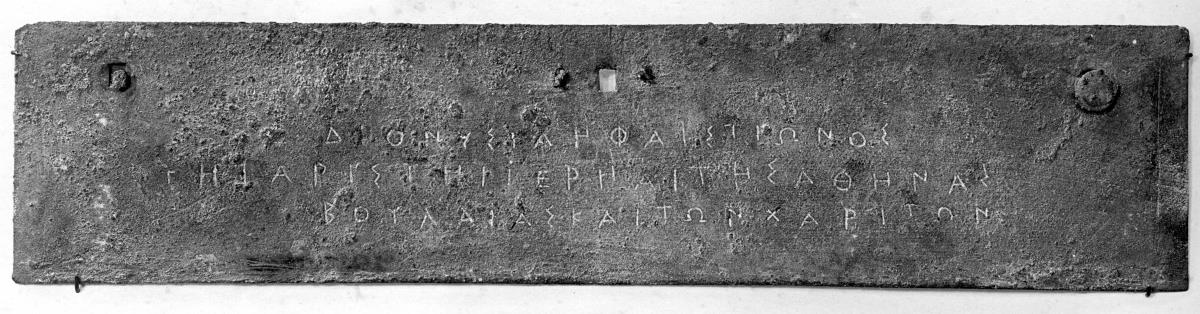 ΔΙΟΝΥΣΙΑΗΦΑΙΣΤΙΩΝΟΣ
ΤΗΙΑΡΙΣΤΗΙΙΕΡΗΑΙΤΗΣΑΘΗΝΑΣ
ΒΟΥΛΑΙΑΣΚΑΙΤΩΝΧΑΡΙΤΩΝ